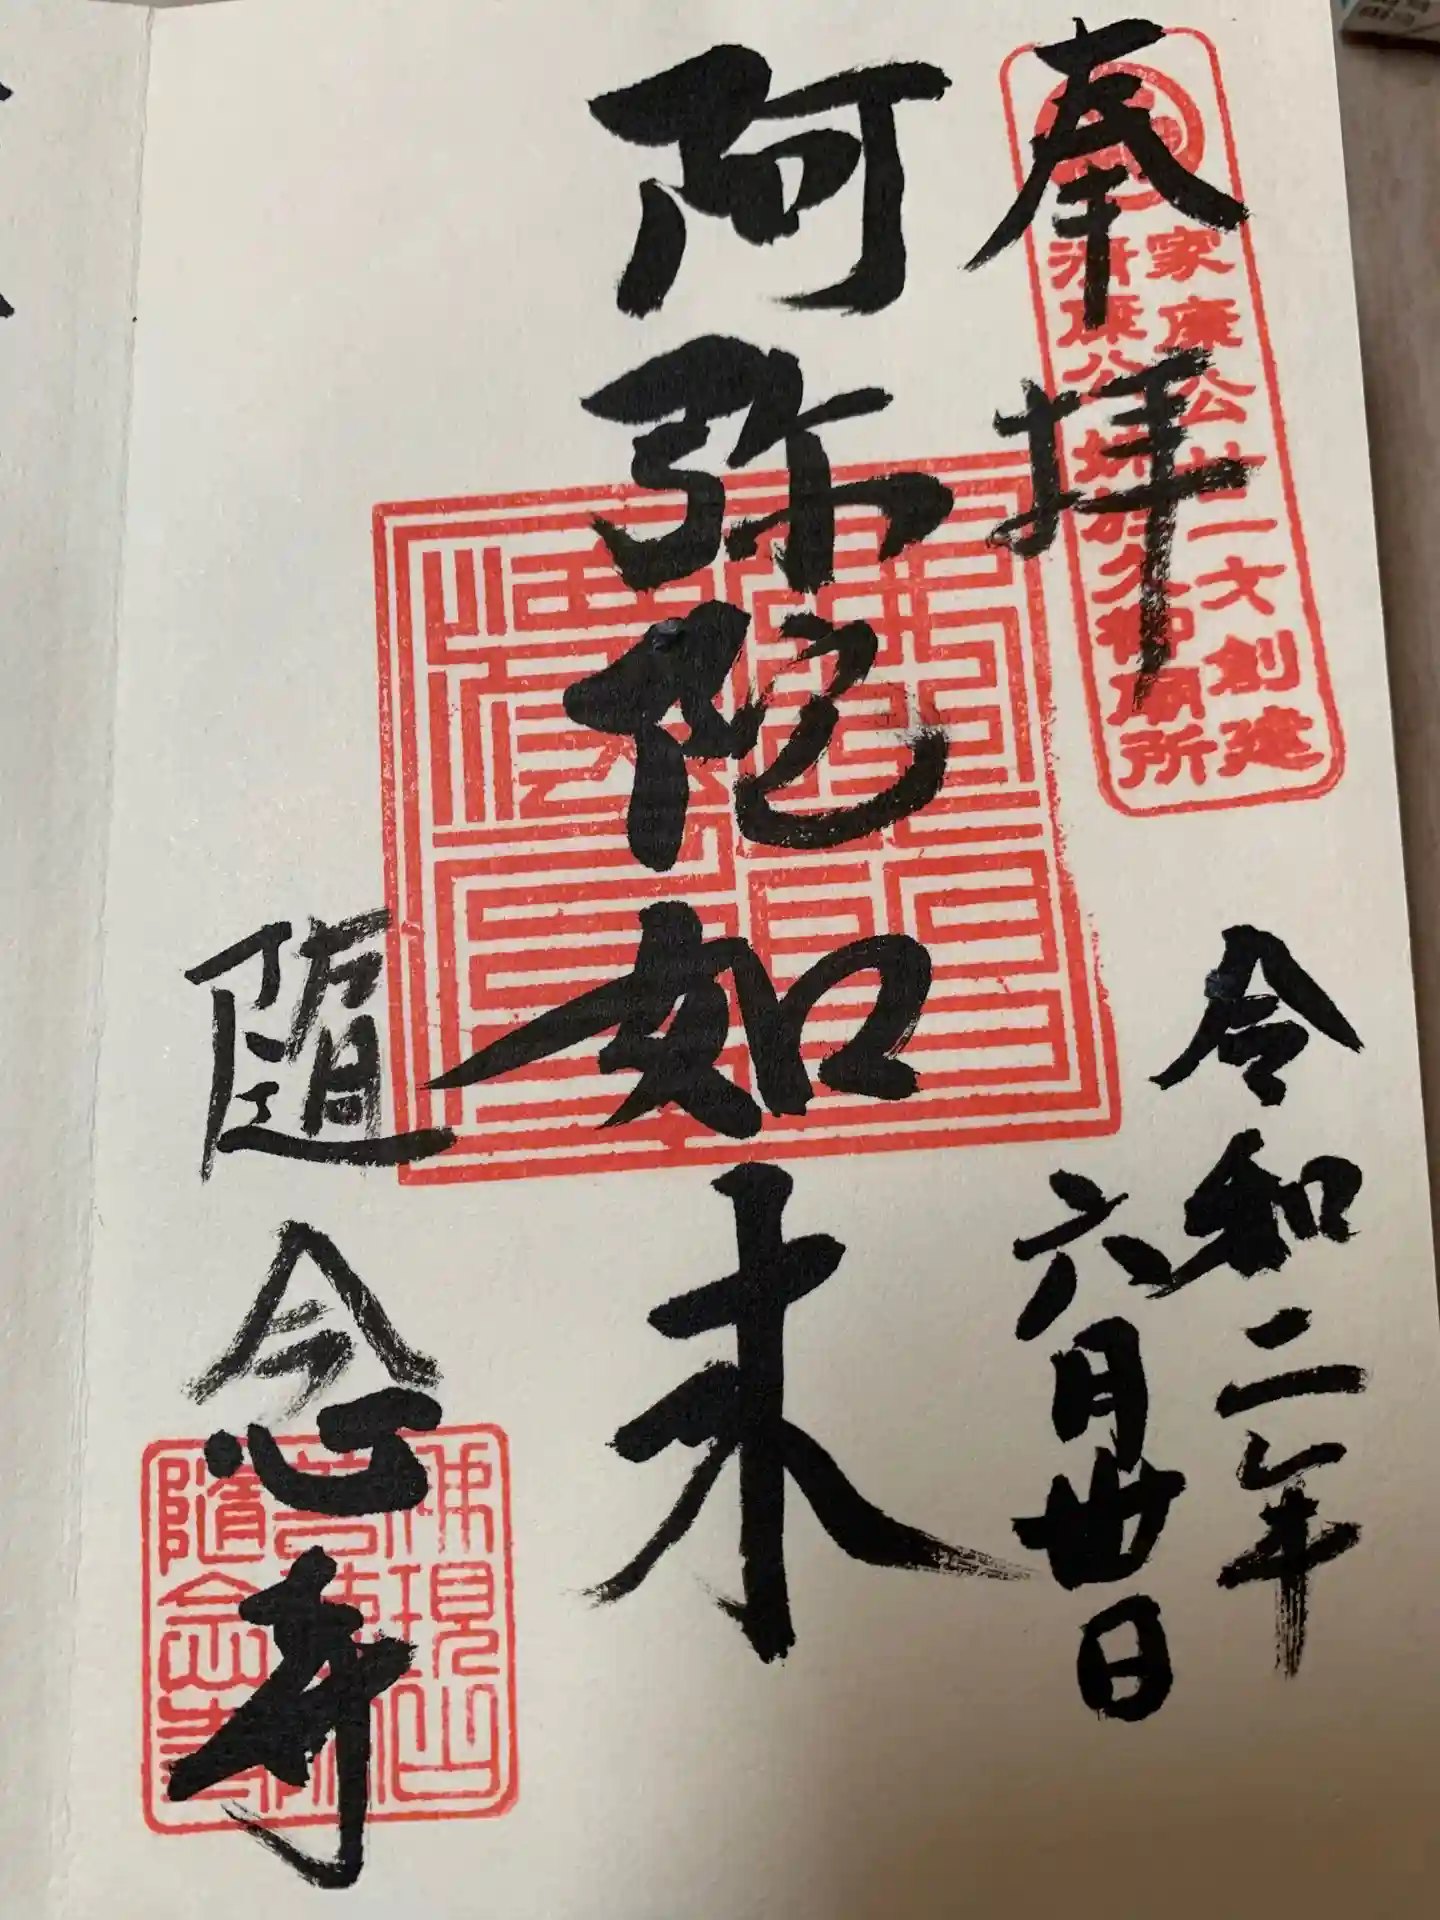 奉拝
家康公廿一文創建
清康公姉於久御廟所
令和二年
六月廿日
阿弥陀如来
佛法僧寶
随念寺
佛現山
随念寺